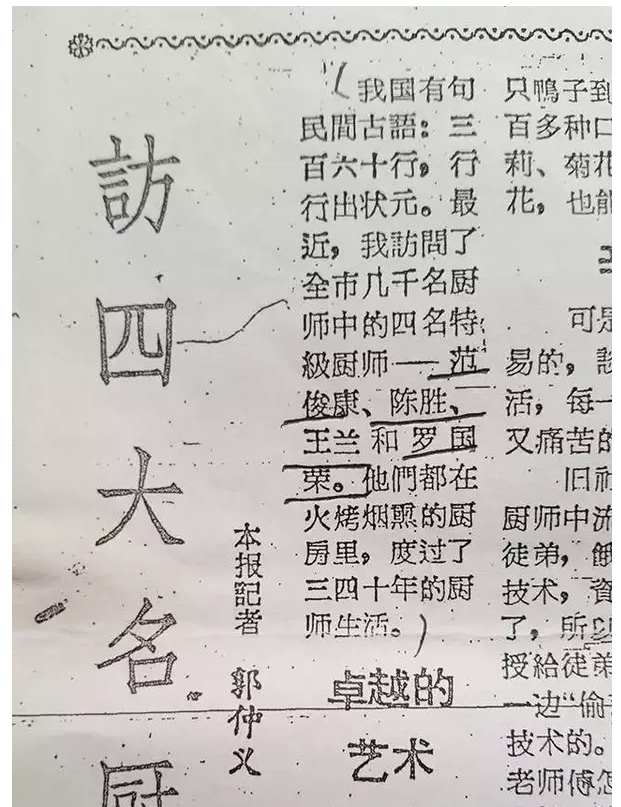 訪四大名厨
本报記者 郭仲义
我国有句
民間古語：三
百六十行，行
行出状元。最
近，我訪問了
全市几千名厨
师中的四名特
級厨师——范
俊康、陈胜、
王兰和罗国
荣。他們都在
火烤烟熏的厨
房里，度过了
三四十年的厨
师生活。
卓越的
艺术
只鴨子到
百多种口
莉、菊花
花，也能
可是
易的，談
活，每一
又痛苦的
旧社
厨师中流
徒弟，餓
技术，資
了，所以
授給徒弟
一边“偷
技术的。
老师傅怎